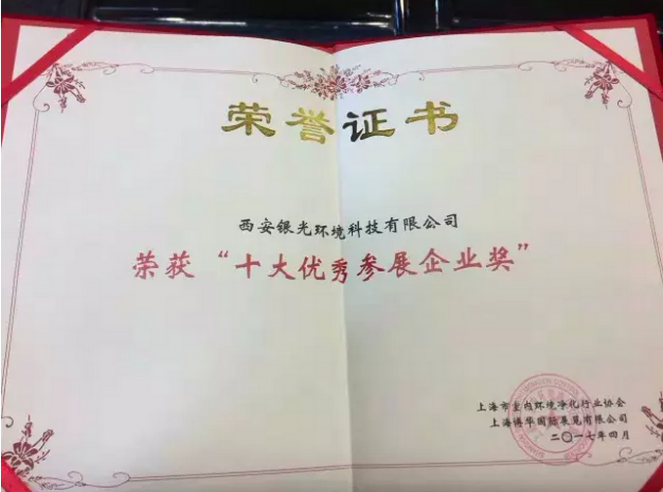 荣誉证书
西安银光环境科技有限公司
荣获“十大优秀参展企业奖”
上海市室内环境净化行业协会
上海博华国际展览有限公司
二〇一七年四月